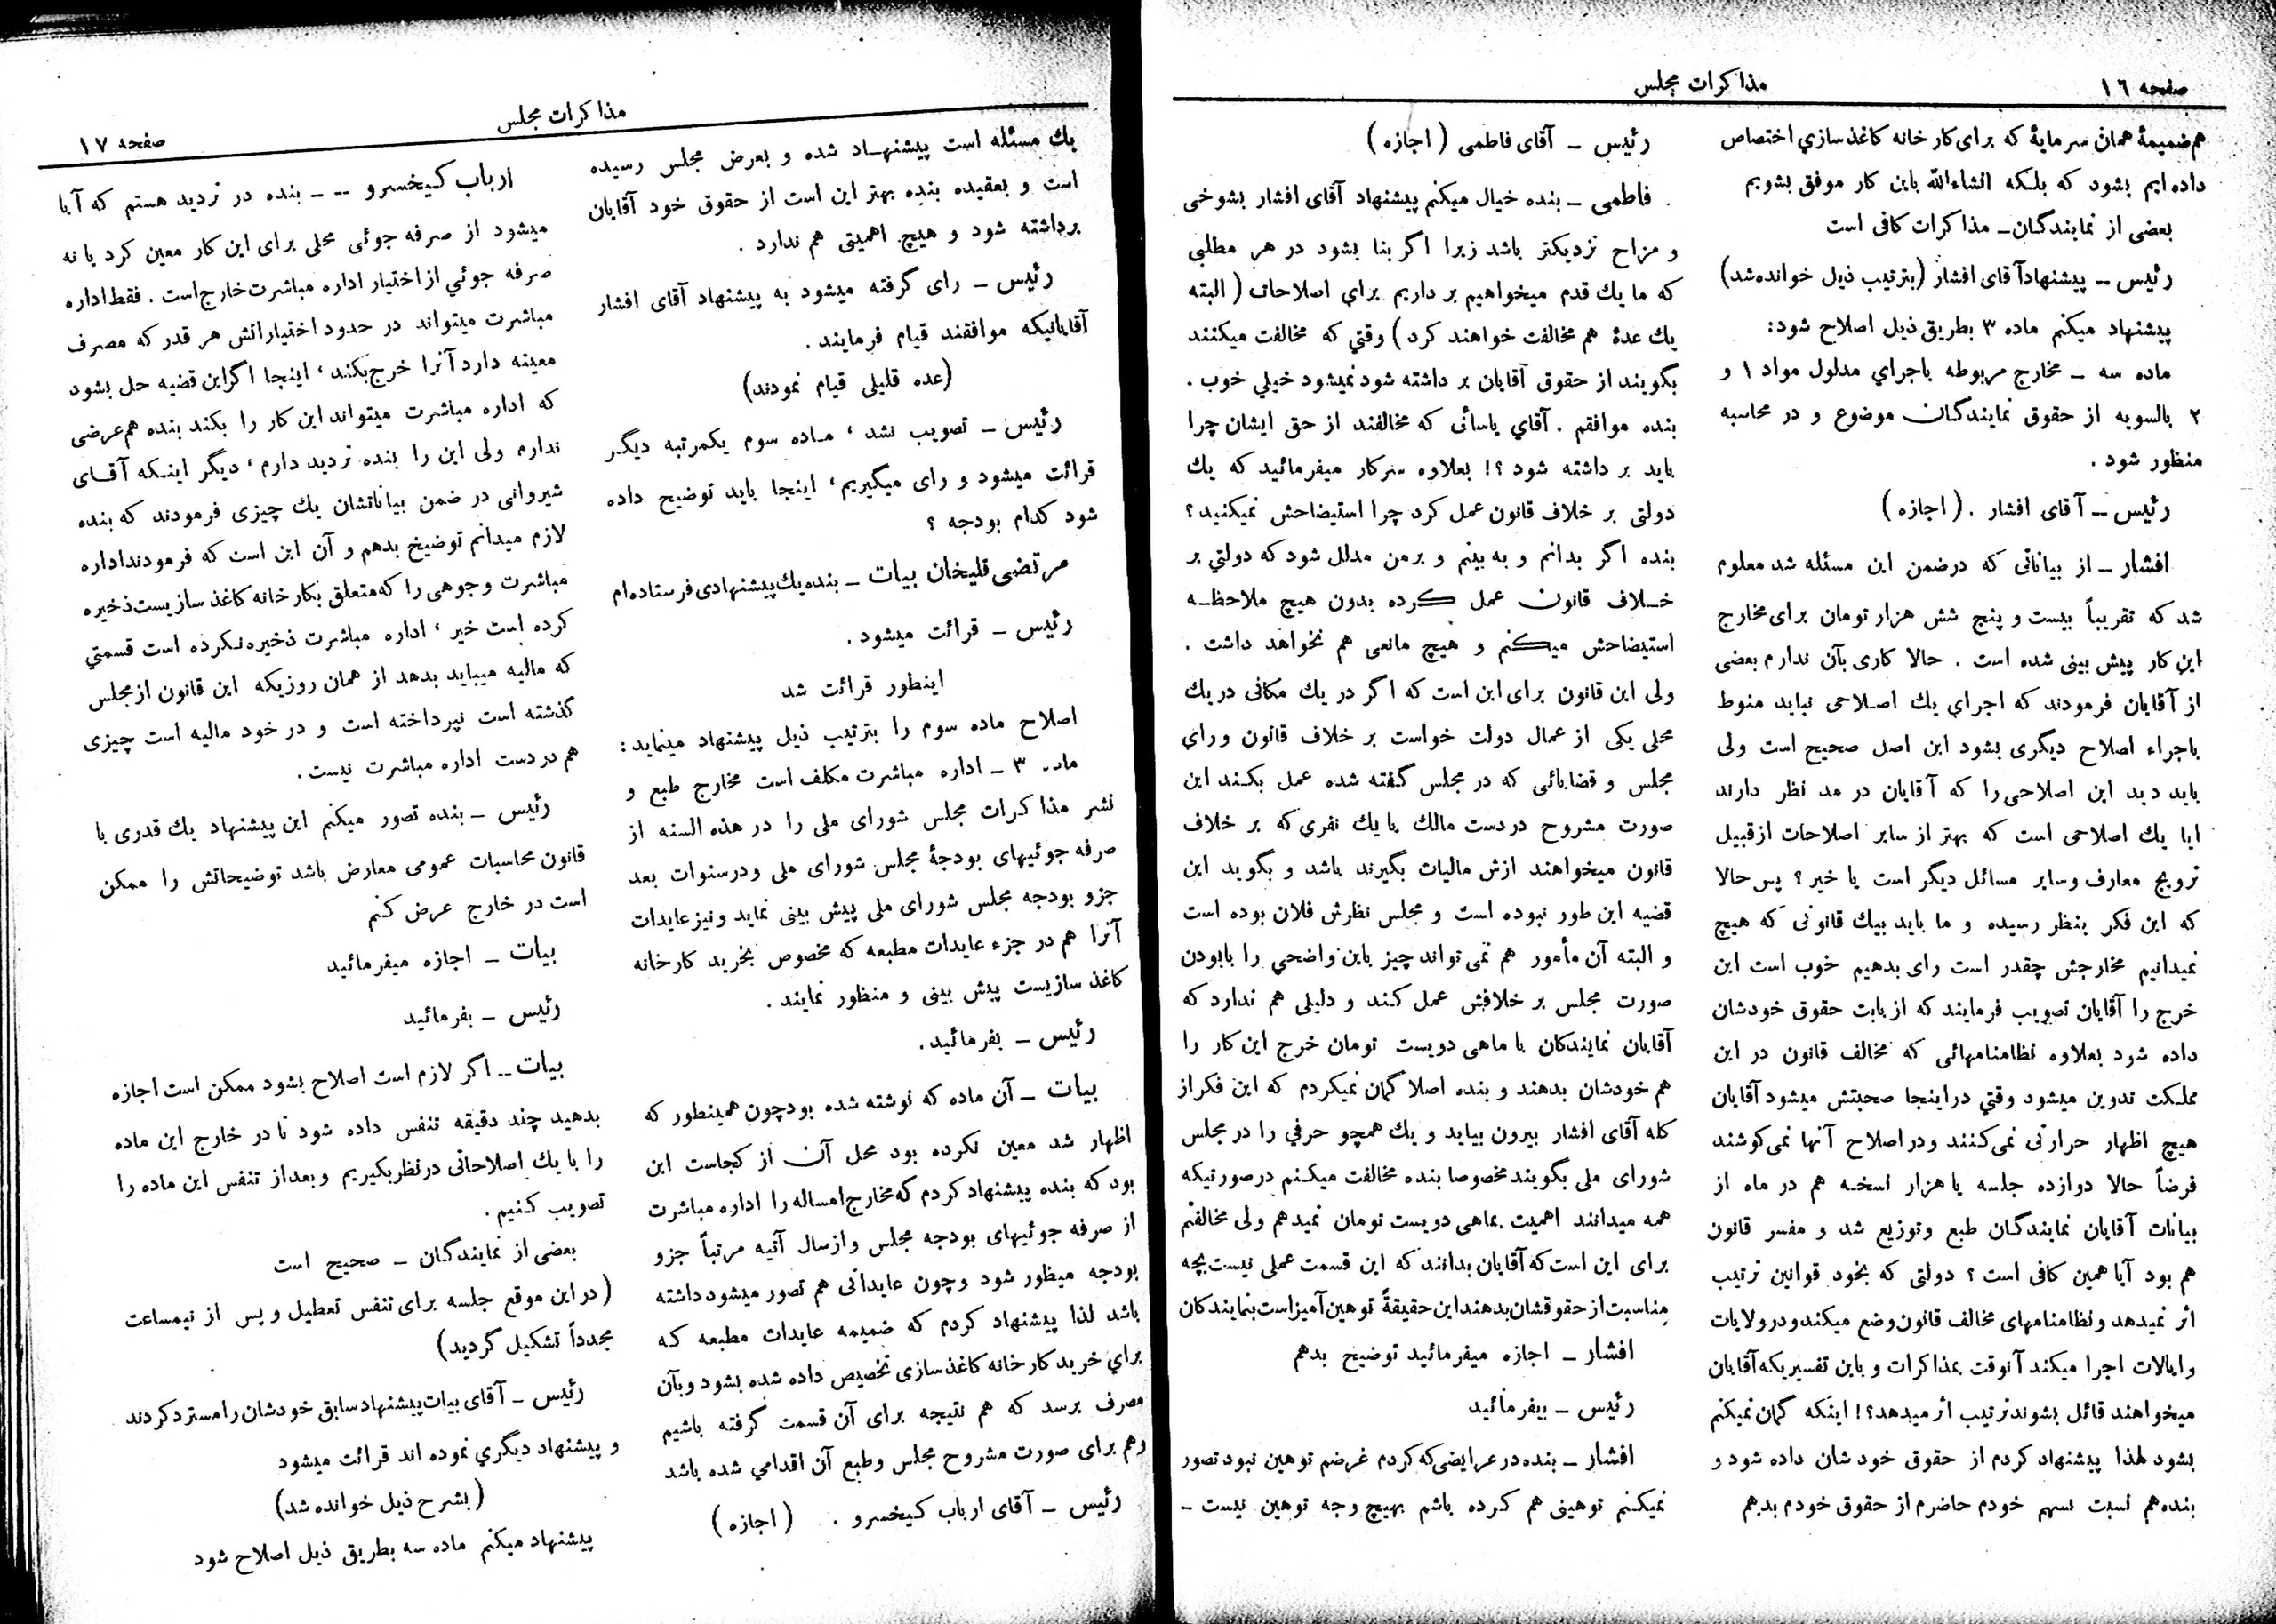 صفحه ۱۶
مذاکرات مجلس
هم ضمیمهٔ همان سرمایهٔ که برای کارخانه کاغذ سازي اختصاص
داده ایم بشود که بلکه انشاءالله باین کار موفق بشویم
بعضی از نمایندگان ـ مذاکرات کافی است
رئیس ـ پیشنهاد آقای افشار (بترتیب ذیل خوانده شد)
پیشنهاد میکنم ماده ۳ بطریق ذیل اصلاح شود:
ماده سه ـ مخارج مربوطه باجراي مدلول مواد ۱ و
۲ بالسویه از حقوق نمایندگان موضوع و در محاسبه
منظور شود .
رئیس ـ آقای افشار . (اجازه)
افشار ـ از بیاناتی که درضمن این مسئله شد معلوم
شد که تقریباً بیست و پنج شش هزار تومان برای مخارج
این کار پیش بینی شده است . حالا کاری بآن ندارم بعضی
از آقایان فرمودند که اجراي یك اصلاحی نباید منوط
باجراء اصلاح دیگری بشود این اصل صحیح است ولی
باید دید این اصلاحی را که آقایان در مد نظر دارند
ایا یك اصلاحی است که بهتر از سایر اصلاحات ازقبیل
ترویج معارف وسایر مسائل دیگر است یا خیر ؟ پس حالا
که این فکر بنظر رسیده و ما باید بیك قانونی که هیچ
نمیدانیم مخارجش چقدر است رای بدهیم خوب است این
خرج را آقایان تصویب فرمایند که از بابت حقوق خودشان
داده شود بعلاوه نظامنامهائی که مخالف قانون در این
مملکت تدوین میشود وقتي دراینجا صحبتش میشود آقایان
هیچ اظهار حرارتی نمی کنند ودر اصلاح آنها نمی کوشند
فرضاً حالا دوازده جلسه یا هزار نسخه هم در ماه از
بیانات آقایان نمایندگان طبع وتوزیع شد و مفسر قانون
هم بود آیا همین کافی است ؟ دولتی که بخود قوانین ترتیب
اثر نمیدهد ونظامنامهای مخالف قانون وضع میکند ودر ولایات
وایالات اجرا میکند آنوقت بمذاکرات و باین تفسیریکه آقایان
میخواهند قائل بشوند ترتیب اثر میدهد؟! اینکه گمان نمیکنم
بشود لهذا پیشنهاد کردم از حقوق خود شان داده شود و
بنده هم نسبت بسهم خودم حاضرم از حقوق خودم بدهم
رئیس ـ آقای فاطمی (اجازه)
فاطمی ـ بنده خیال میکنم پیشنهاد آقای افشار بشوخی
و مزاح نزدیکتر باشد زیرا اگر بنا بشود در هر مطلبي
که ما یك قدم میخواهیم بر داریم براي اصلاحات (البته
یك عدهٔ هم مخالفت خواهند کرد) وقتي که مخالفت میکنند
بگویند از حقوق آقایان بر داشته شود نمیشود خیلي خوب .
بنده موافقم . آقاي یاسائی که مخالفند از حق ایشان چرا
باید بر داشته شود ؟! بعلاوه سرکار میفرمائید که یك
دولتی بر خلاف قانون عمل کرد چرا استیضاحش نمیکنید ؟
بنده اگر بدانم و به بینم و برمن مدلل شود که دولتي بر
خلاف قانون عمل کرده بدون هیچ ملاحظه
استیضاحش میکنم و هیچ مانعی هم نخواهد داشت .
ولی این قانون برای این است که اگر در یك مکانی در یك
محلی یکی از عمال دولت خواست بر خلاف قانون وراي
مجلس و قضایائی که در مجلس گفته شده عمل بکند این
صورت مشروح دردست مالك یا یك نفري که بر خلاف
قانون میخواهند ازش مالیات بگیرند باشد و بگوید این
قضیه این طور نبوده است و مجلس نظرش فلان بوده است
و البته آن مأمور هم نمی تواند چیز باین واضحي را بابودن
صورت مجلس بر خلافش عمل کند و دلیلی هم ندارد که
آقایان نمایندکان با ماهی دویست تومان خرج این کار را
هم خودشان بدهند و بنده اصلا گمان نمیکردم که این فکر از
کله آقای افشار بیرون بیاید و یك همچو حرفي را در مجلس
شورای ملی بگویند مخصوصا بنده مخالفت میکنم درصورتیکه
همه میدانند اهمیت بماهی دویست تومان نمیدهم ولی مخالفتم
برای این است که آقایان بدانند که این قسمت عملی نیست بچه
مناسبت از حقوقشان بدهند این حقیقةً توهین آمیز است بنمایندکان
افشار ـ اجازه میفرمائید توضیح بدهم
رئیس ـ بفرمائید
افشار ـ بنده در عرایضی که کردم غرضم توهین نبود تصور
نمیکنم توهینی هم کرده باشم بهیچ وجه توهین نیست ـ
مذاکرات مجلس
صفحه ۱۷
یك مسئله است پیشنهاد شده و بعرض مجلس رسیده
است و بعقیده بنده بهتر این است از حقوق خود آقایان
برداشته شود و هیچ اهمیتی هم ندارد .
رئیس ـ رای گرفته میشود به پیشنهاد آقای افشار
آقایانیکه موافقند قیام فرمایند .
(عده قلیلی قیام نمودند)
رئیس ـ تصویب نشد ، ماده سوم یکمرتبه دیگر
قرائت میشود و رای میگیریم ، اینجا باید توضیح داده
شود کدام بودجه ؟
مرتضی قلیخان بیات ـ بنده یك پیشنهادی فرستاده ام
رئیس ـ قرائت میشود .
اینطور قرائت شد
اصلاح ماده سوم را بترتیب ذیل پیشنهاد مینماید :
ماده ۳ ـ اداره مباشرت مکلف است مخارج طبع و
نشر مذاکرات مجلس شورای ملی را در هذه السنه از
صرفه جوئیهای بودجهٔ مجلس شورای ملی ودرسنوات بعد
جزو بودجه مجلس شورای ملی پیش بینی نماید ونیز عایدات
آنرا هم در جزء عایدات مطبعه که مخصوص بخرید کارخانه
کاغذ سازیست پیش بینی و منظور نمایند .
رئیس ـ بفرمائید .
بیات ـ آن ماده که نوشته شده بود چون همینطور که
اظهار شد معین نکرده بود محل آن از کجاست این
بود که بنده پیشنهاد کردم که مخارج امساله را اداره مباشرت
از صرفه جوئیهای بودجه مجلس وازسال آتیه مرتباً جزو
بودجه میظور شود وچون عایداتی هم تصور میشود داشته
باشد لذا پیشنهاد کردم که ضمیمه عایدات مطبعه که
براي خرید کارخانه کاغذ سازی تخصیص داده شده بشود وبآن
مصرف برسد که هم نتیجه برای آن قسمت گرفته باشیم
وهم برای صورت مشروح مجلس وطبع آن اقدامي شده باشد
رئیس ـ آقای ارباب کیخسرو . (اجازه)
ارباب کیخسرو ـ ـ بنده در تردید هستم که آیا
میشود از صرفه جوئی محلی برای این کار معین کرد یا نه
صرفه جوئي از اختیار اداره مباشرت خارج است . فقط اداره
مباشرت میتواند در حدود اختیاراتش هر قدر که مصرف
معینه دارد آنرا خرج بکند ، اینجا اگر این قضیه حل بشود
که اداره مباشرت میتواند این کار را بکند بنده هم عرضی
ندارم ولی این را بنده تردید دارم ، دیگر اینکه آقای
شیروانی در ضمن بیاناتشان یك چیزی فرمودند که بنده
لازم میدانم توضیخ بدهم و آن این است که فرمودند اداره
مباشرت وجوهی را که متعلق بکارخانه کاغذ سازیست ذخیره
کرده است خیر ، اداره مباشرت ذخیره نکرده است قسمتي
که مالیه میباید بدهد از همان روزیکه این قانون از مجلس
گذشته است نپرداخته است و در خود مالیه است چیزی
هم در دست اداره مباشرت نیست .
رئیس ـ بنده تصور میکنم این پیشنهاد یك قدری با
قانون محاسبات عمومی معارض باشد توضیحاتش را ممکن
است در خارج عرض کنم
بیات ـ اجازه میفرمائید
رئیس ـ بفرمائید
بیات ـ اگر لازم است اصلاح بشود ممکن است اجازه
بدهید چند دقیقه تنفس داده شود تا در خارج این ماده
را با یك اصلاحاتی در نظر بکیریم و بعد از تنفس این ماده را
تصویب کنیم .
بعضی از نمایندگان ـ صحیح است
(در این موقع جلسه برای تنفس تعطیل و پس از نیمساعت
مجدداً تشکیل گردید)
رئیس ـ آقای بیات پیشنهاد سابق خودشان را مسترد کردند
و پیشنهاد دیگري نموده اند قرائت میشود
(بشرح ذیل خوانده شد)
پیشنهاد میکنم ماده سه بطریق ذیل اصلاح شود